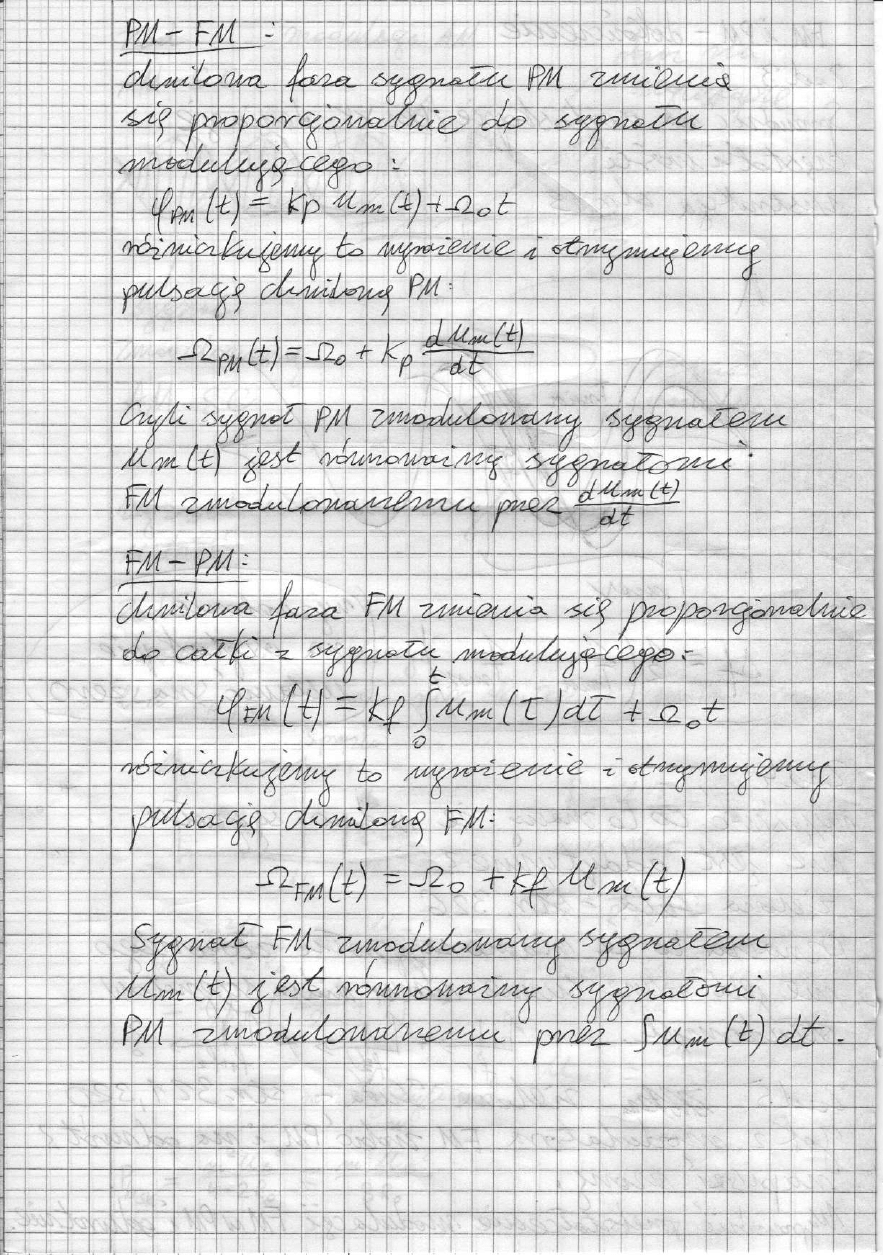 PM – FM :
chwilowa faza sygnału PM zmienia
się proporcjonalnie do sygnału
modulującego :
φPM(t) = kp um(t) + Ω0t
różniczkujemy to wyrażenie i otrzymujemy
pulsację chwilową PM:
ΩPM(t) = Ω0 + kp dum(t)/dt
Czyli sygnał PM zmodulowany sygnałem
um(t) jest równoważny sygnałowi
FM zmodulowanemu przez dum(t)/dt
FM – PM:
chwilowa faza FM zmienia się proporcjonalnie
do całki z sygnału modulującego:
φFM(t) = kf ∫₀ᵗ um(τ) dτ + Ω0t
różniczkujemy to wyrażenie i otrzymujemy
pulsację chwilową FM:
ΩFM(t) = Ω0 + kf um(t)
Sygnał FM zmodulowany sygnałem
um(t) jest równoważny sygnałowi
PM zmodulowanemu przez ∫um(t) dt .